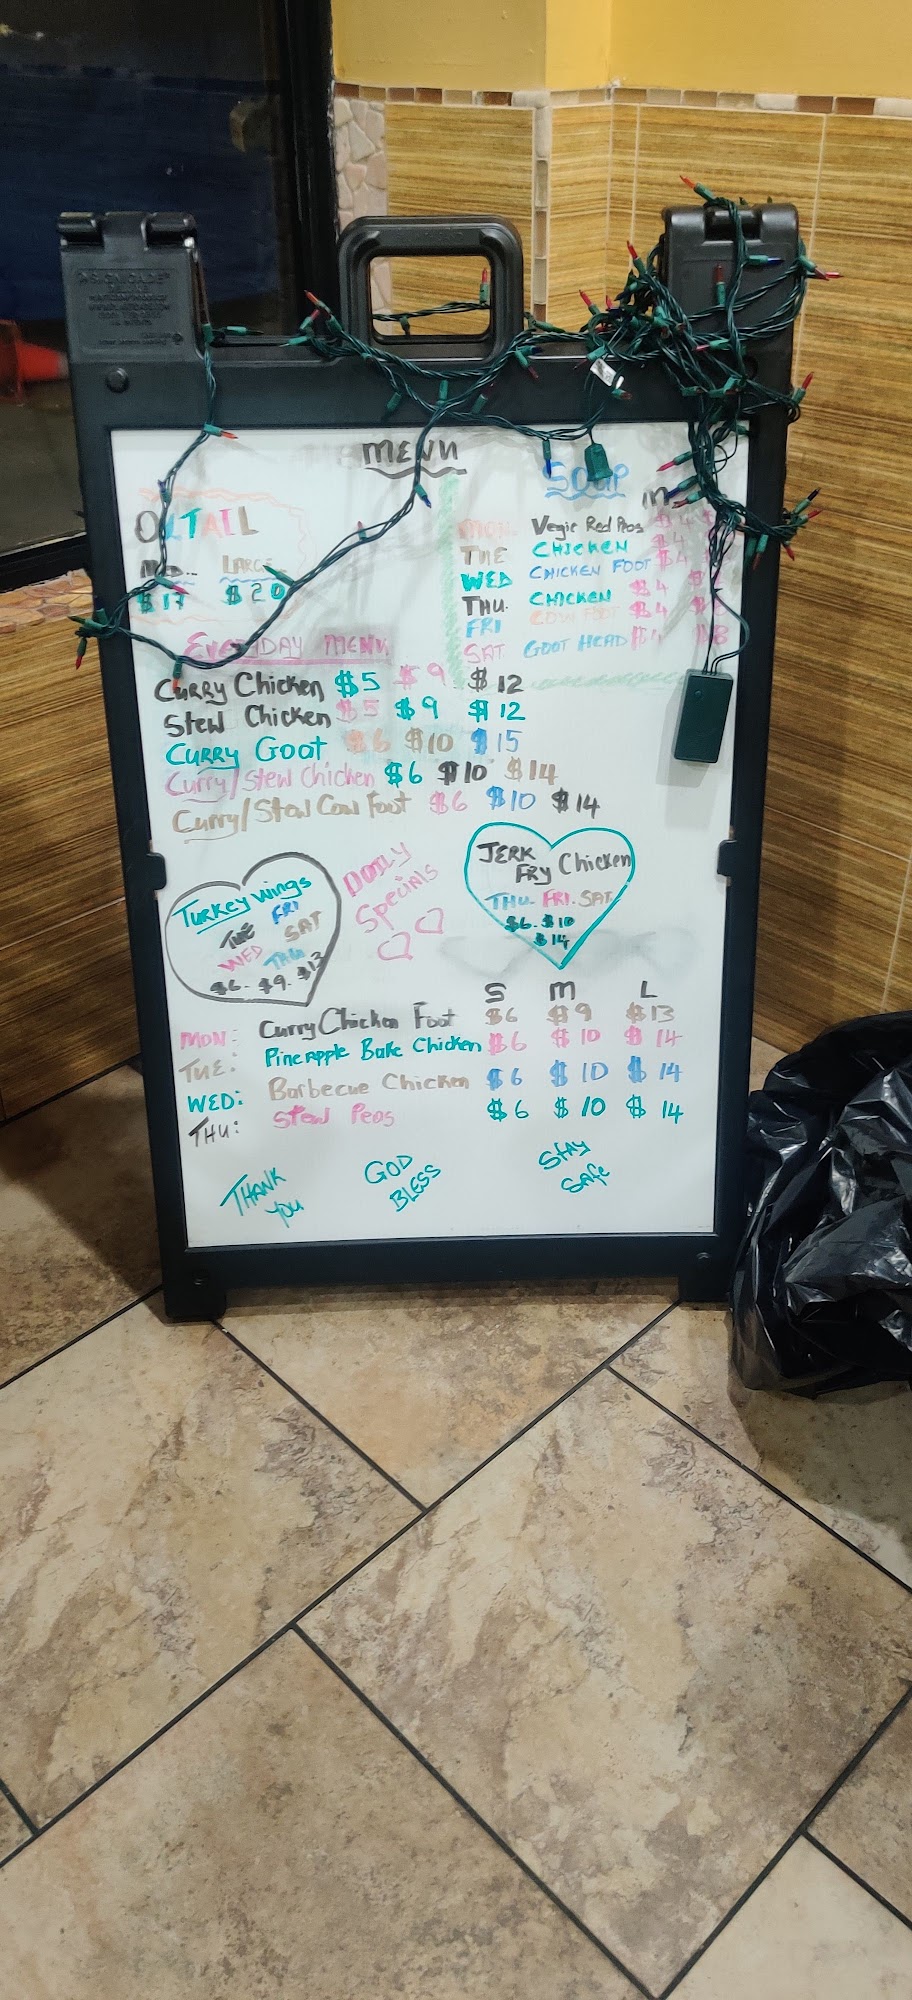 MENU
OXTAIL
MED... LARGE..
$17 $20
SOUP
MON. Vegie Red Peas $4
TUE CHICKEN $4
WED CHICKEN FOOT $4
THU. CHICKEN $4
FRI COW FOOT $4
SAT GOOT HEAD $4 $8
EVERYDAY MENU
CURRY Chicken $5 $9 $12
Stew Chicken $5 $9 $12
CURRY Goot $6 $10 $15
Curry/Stew Chicken $6 $10 $14
Curry/Stew Cow Foot $6 $10 $14
Turkey wings
TUE FRI
WED SAT
THU
$6. $9. $13
DAILY
Specials
JERK
FRY Chicken
THU. FRI. SAT.
$6. $10
$14
S M L
MON: Curry Chicken Foot $6 $9 $13
TUE: Pineapple Bake Chicken $6 $10 $14
WED: Barbecue Chicken $6 $10 $14
THU: Stew Peas $6 $10 $14
THANK
YOU
GOD
BLESS
Stay
Safe